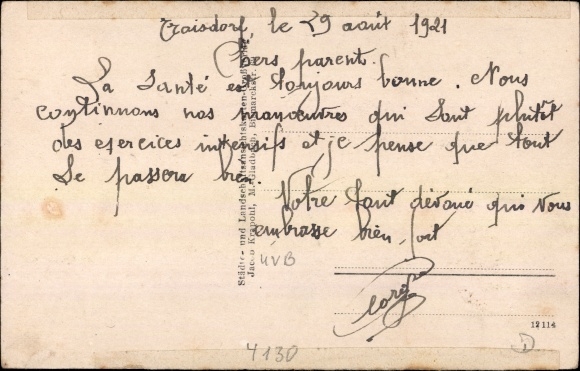 Troisdorf, le 29 août 1921
Chers parents.
La Santé est toujours bonne. Nous
continuons nos manoeuvres qui Sont plutôt
des exercices intensifs et je pense que tout
Se passera bien.
Votre tout dévoué qui Vous
embrasse bien fort
Städte- und Landschaftsansichtskarten-Großverlag
Jacob Krapohl, M.-Gladbach, Bismarckstr.
UVB
12114
4130
D